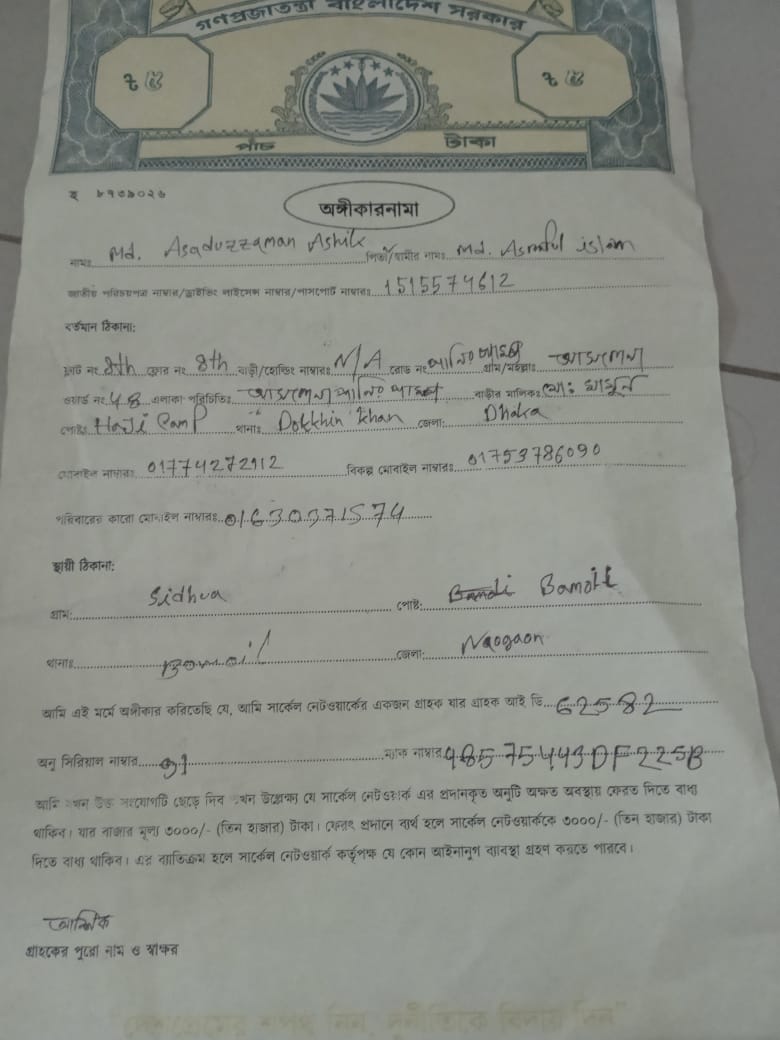 গণপ্রজাতন্ত্রী বাংলাদেশ সরকার
৳ ৫ ৳ ৫
পাঁচ টাকা
৮৭৩৯০২৬
অঙ্গীকারনামা
নামঃ Md. Asaduzzaman Ashik পিতা/স্বামীর নামঃ Md. Asraful islam
জাতীয় পরিচয়পত্র নাম্বার/ড্রাইভিং লাইসেন্স নাম্বার/পাসপোর্ট নাম্বারঃ 1515574612
বর্তমান ঠিকানা:
ফ্লাট নং 8th ফ্লোর নং 8th বাড়ী/হোল্ডিং নাম্বারঃ N/A রোড নং গ্রাম/মহল্লাঃ
ওয়ার্ড নং 48 এলাকা পরিচিতিঃ বাড়ীর মালিকঃ মোঃ মামুন
পোষ্টঃ Haji Camp থানাঃ Dokkhin khan জেলা: Dhaka
মোবাইল নাম্বারঃ 01774272912 বিকল্প মোবাইল নাম্বারঃ 01753786090
পরিবারের কারো মোবাইল নাম্বারঃ 01630371574
স্থায়ী ঠিকানা:
গ্রাম: Sidhua পোষ্ট:
থানাঃ জেলা: Naogaon
আমি এই মর্মে অঙ্গীকার করিতেছি যে, আমি সার্কেল নেটওয়ার্কের একজন গ্রাহক যার গ্রাহক আই ডি 62582
অনু সিরিয়াল নাম্বার ম্যাক নাম্বার 48575443DF225B
আমি যখন উক্ত সংযোগটি ছেড়ে দিব তখন উল্লেক্ষ্য যে সার্কেল নেটওয়ার্ক এর প্রদানকৃত অনুটি অক্ষত অবস্থায় ফেরত দিতে বাধ্য
থাকিব। যার বাজার মূল্য ৩০০০/- (তিন হাজার) টাকা। ফেরৎ প্রদানে ব্যর্থ হলে সার্কেল নেটওয়ার্ককে ৩০০০/- (তিন হাজার) টাকা
দিতে বাধ্য থাকিব। এর ব্যতিক্রম হলে সার্কেল নেটওয়ার্ক কর্তৃপক্ষ যে কোন আইনানুগ ব্যবস্থা গ্রহণ করতে পারবে।
আশিক
গ্রাহকের পুরো নাম ও স্বাক্ষর
"দেশপ্রেমের শপথ নিন, দুর্নীতিকে বিদায় দিন"